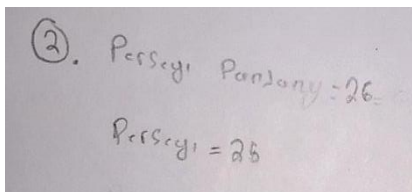 ②. Persegi Panjang = 26
Persegi = 26